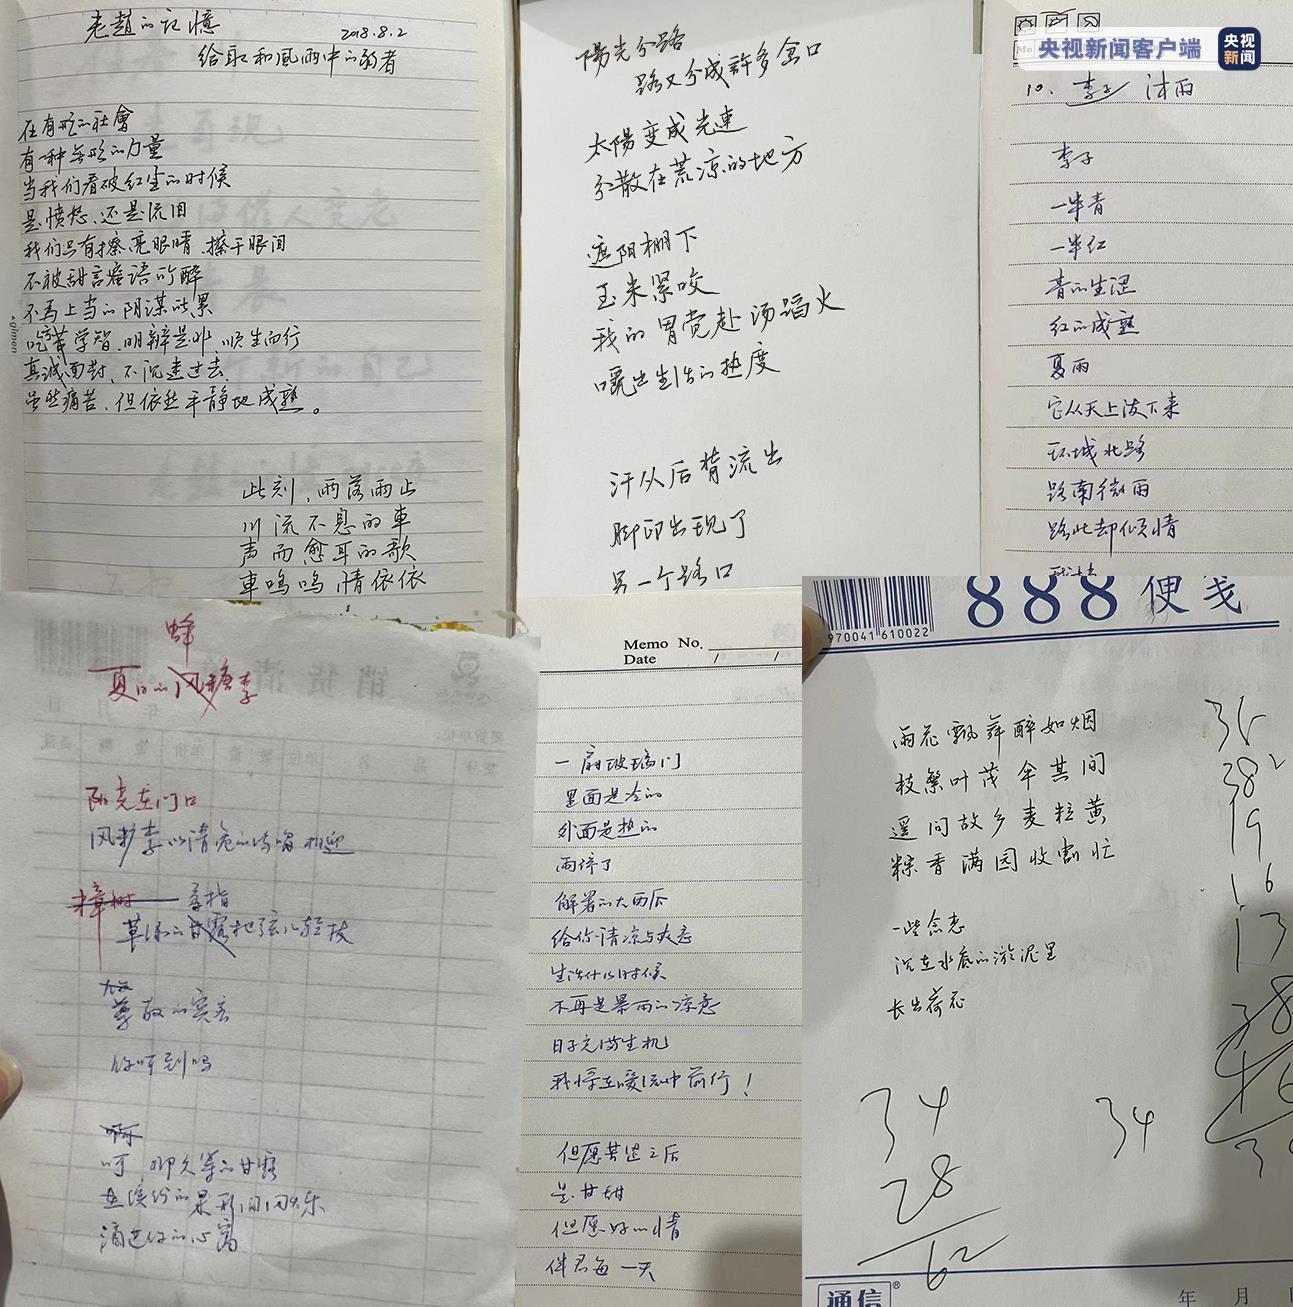 老趙的记憶
2018.8.2
给取和風雨中的弱者
在有形的社會
有一种无形的力量
当我们看破红尘的时候
是愤怒、还是流泪
我们只有擦亮眼睛、擦干眼泪
不被甜言蜜语所醉
不再上当的阴谋所累
吃苦学智、明辨是非 顺生而行
真诚面对、不沉迷过去、
虽然痛苦、但依然平静地成熟。
此刻，雨落雨止
川流不息的車
声而愈耳的歌
車鳴鳴 情依依
陽光分路
路又分成許多岔口
太陽变成光速
分散在荒凉的地方
遮阴棚下
玉米紧咬
我的胃竟赴汤蹈火
嚼出生活的热度
汗从后背流出
脚印出现了
另一个路口
央视新闻客户端
央视
新闻
10. 李子 沐雨
李子
一半青
一半红
青的生涩
红的成熟
夏雨
它从天上泼下来
环城北路
路南微雨
路北却倾情
蜂
夏日的风糖李
阳光在门口
风糖李以清亮的嗓相迎
樟树 手指
尊敬的宾客
你听到吗
啊
呵 那久等的甘露
在缤纷的果形间闪乐
滴进你的心窝
Memo No.
Date / /
一扇玻璃门
里面是冷的
外面是热的
雨停了
解暑的大西瓜
给你清凉与爽意
生活什么时候
不再是暴雨的凉意
日子充满生机
我将在暖流中前行！
但愿苦涩之后
是甘甜
但愿好心情
伴君每一天
970041 610022
888便笺
雨花飘舞醉如烟
枝繁叶茂伞其间
遥问故乡麦粒黄
粽香满园收割忙
一些念恋
沉在水底的淤泥里
长出荷花
38
19
1.6
13
34
28
62
34
通信®
年 月